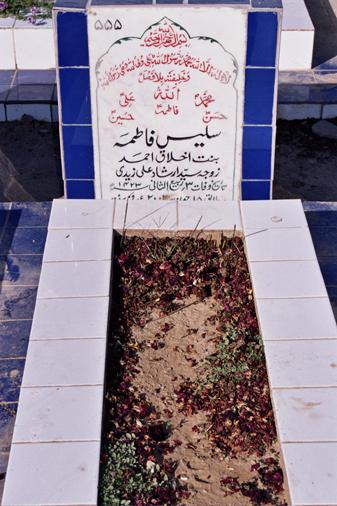 ۵۵۵
بسم اللہ الرحمن الرحیم
لا الہ الا اللہ محمد رسول اللہ علی ولی اللہ وصی رسول اللہ
وخلیفتہ بلا فصل
اللہ
محمد علی
فاطمہ
حسن حسین
سلیس فاطمہ
بنت اخلاق احمد
زوجہ سید ارشاد علی زیدی
تاریخ وفات ۳ ربیع الثانی ۱۴۲۳ھ